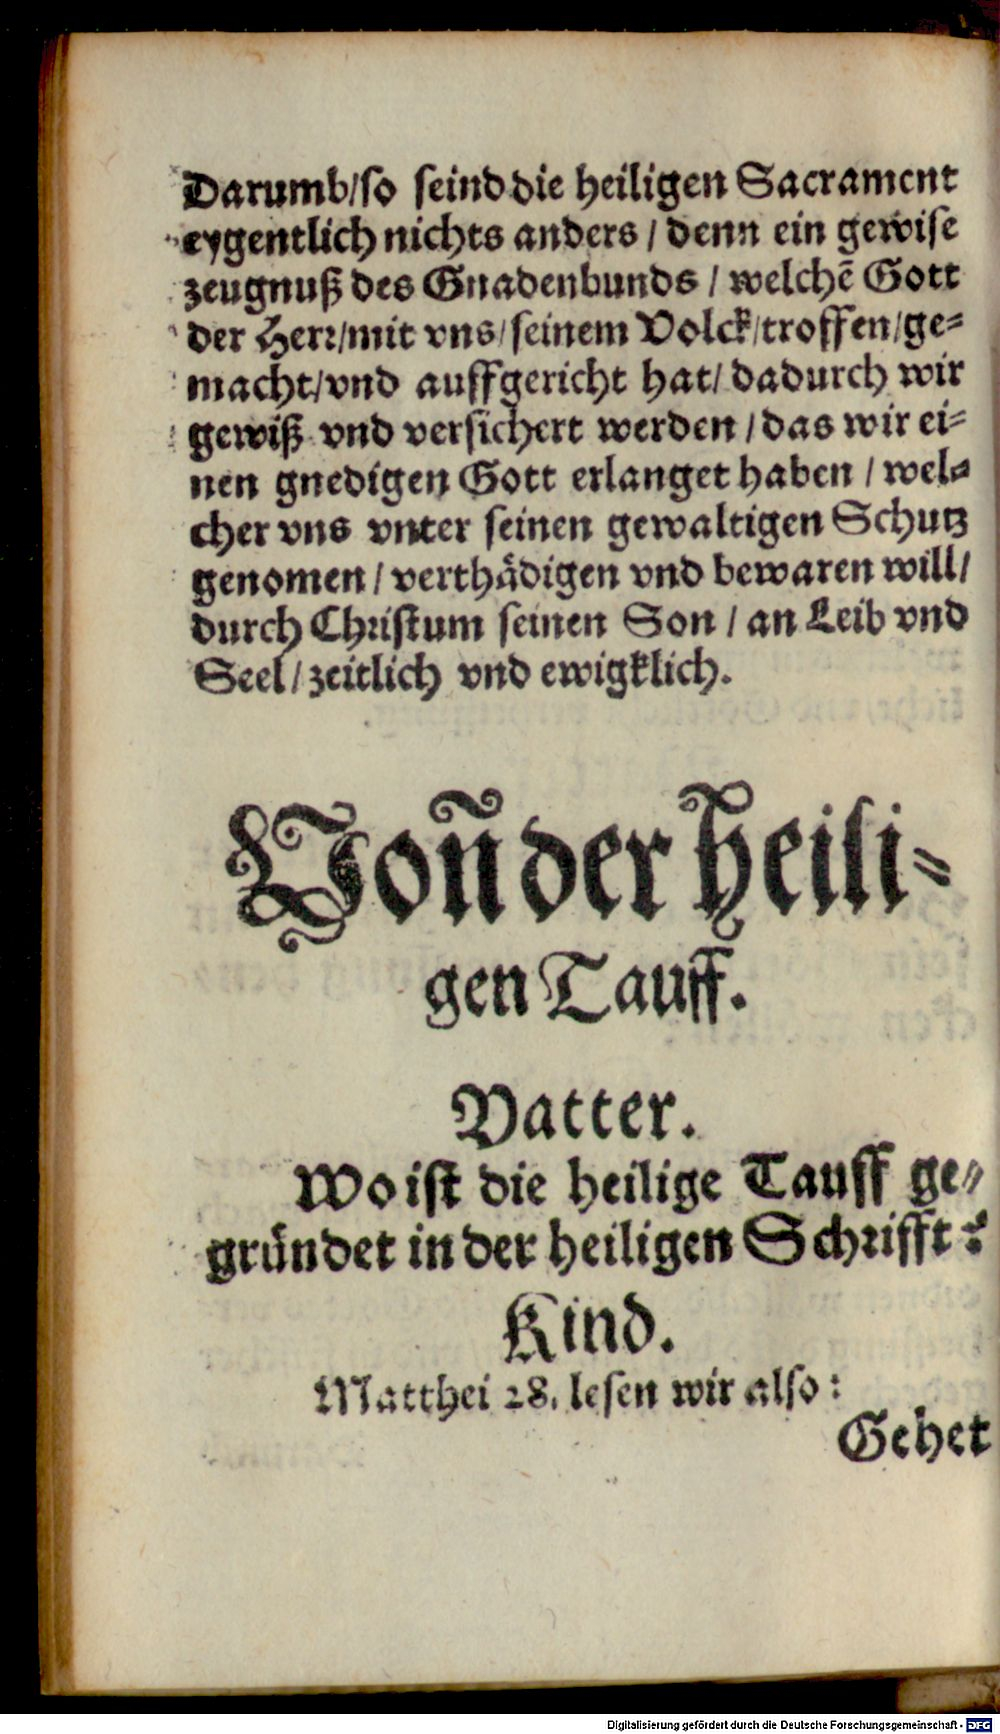 Darumb/so seind die heiligen Sacrament
eygentlich nichts anders / denn ein gewise
zeugnuß des Gnadenbunds / welchē Gott
der Herr/mit vns/seinem Volck/troffen/ge=
macht/vnd auffgericht hat/dadurch wir
gewiß vnd versichert werden / das wir ei=
nen gnedigen Gott erlanget haben / wel=
cher vns vnter seinen gewaltigen Schutz
genomen / verthädigen vnd bewaren will/
durch Christum seinen Son / an Leib vnd
Seel / zeitlich vnd ewigklich.
Von der heili=
gen Tauff.
Vatter.
Wo ist die heilige Tauff ge=
gründet in der heiligen Schrifft?
Kind.
Matthei 28. lesen wir also:
Gehet
Digitalisierung gefördert durch die Deutsche Forschungsgemeinschaft - DFG